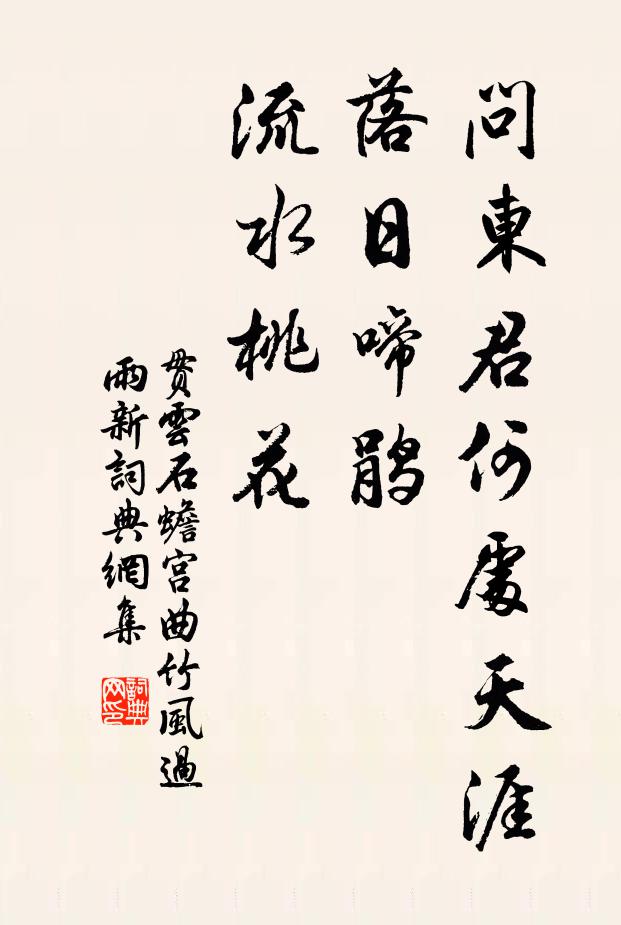 問東君何處天涯
落日啼鵑
流水桃花
貫雲石蟾宮曲竹風過
雨新詞典網集
詞典網印